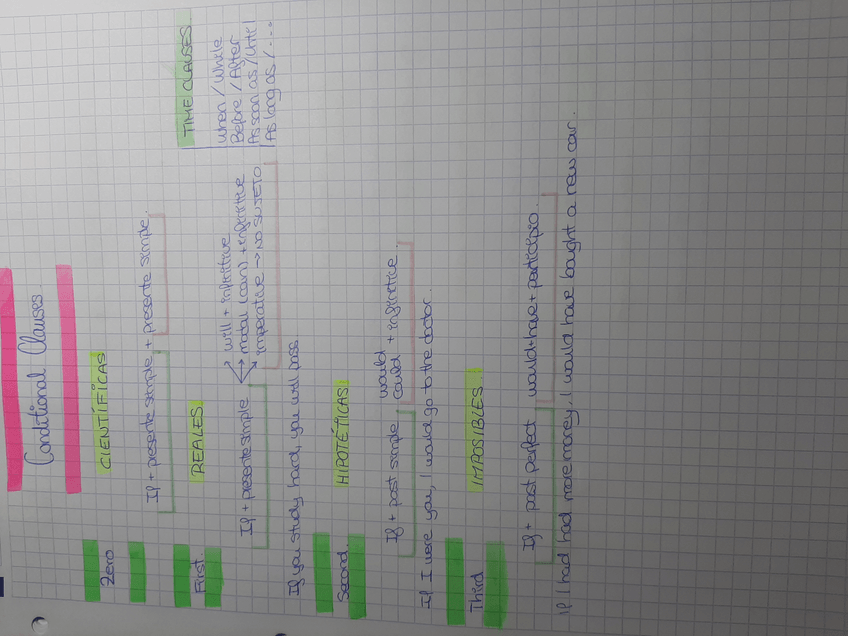 Conditional Clauses.
Zero
CIENTÍFICAS
If + presente simple + presente simple.
First.
REALES
TIME CLAUSES
If + presente simple
will + infinitive
modal (can) + infinitive
imperative → NO SUJETO
When / While
Before / After
As soon as / Until
As long as / ...
If you study hard, you will pass
Second.
HIPOTÉTICAS
If + past simple
would
could + infinitive.
If I were you, I would go to the doctor.
Third
IMPOSIBLES.
If + past perfect would+have+participio.
If I had had more money, I would have bought a new car.